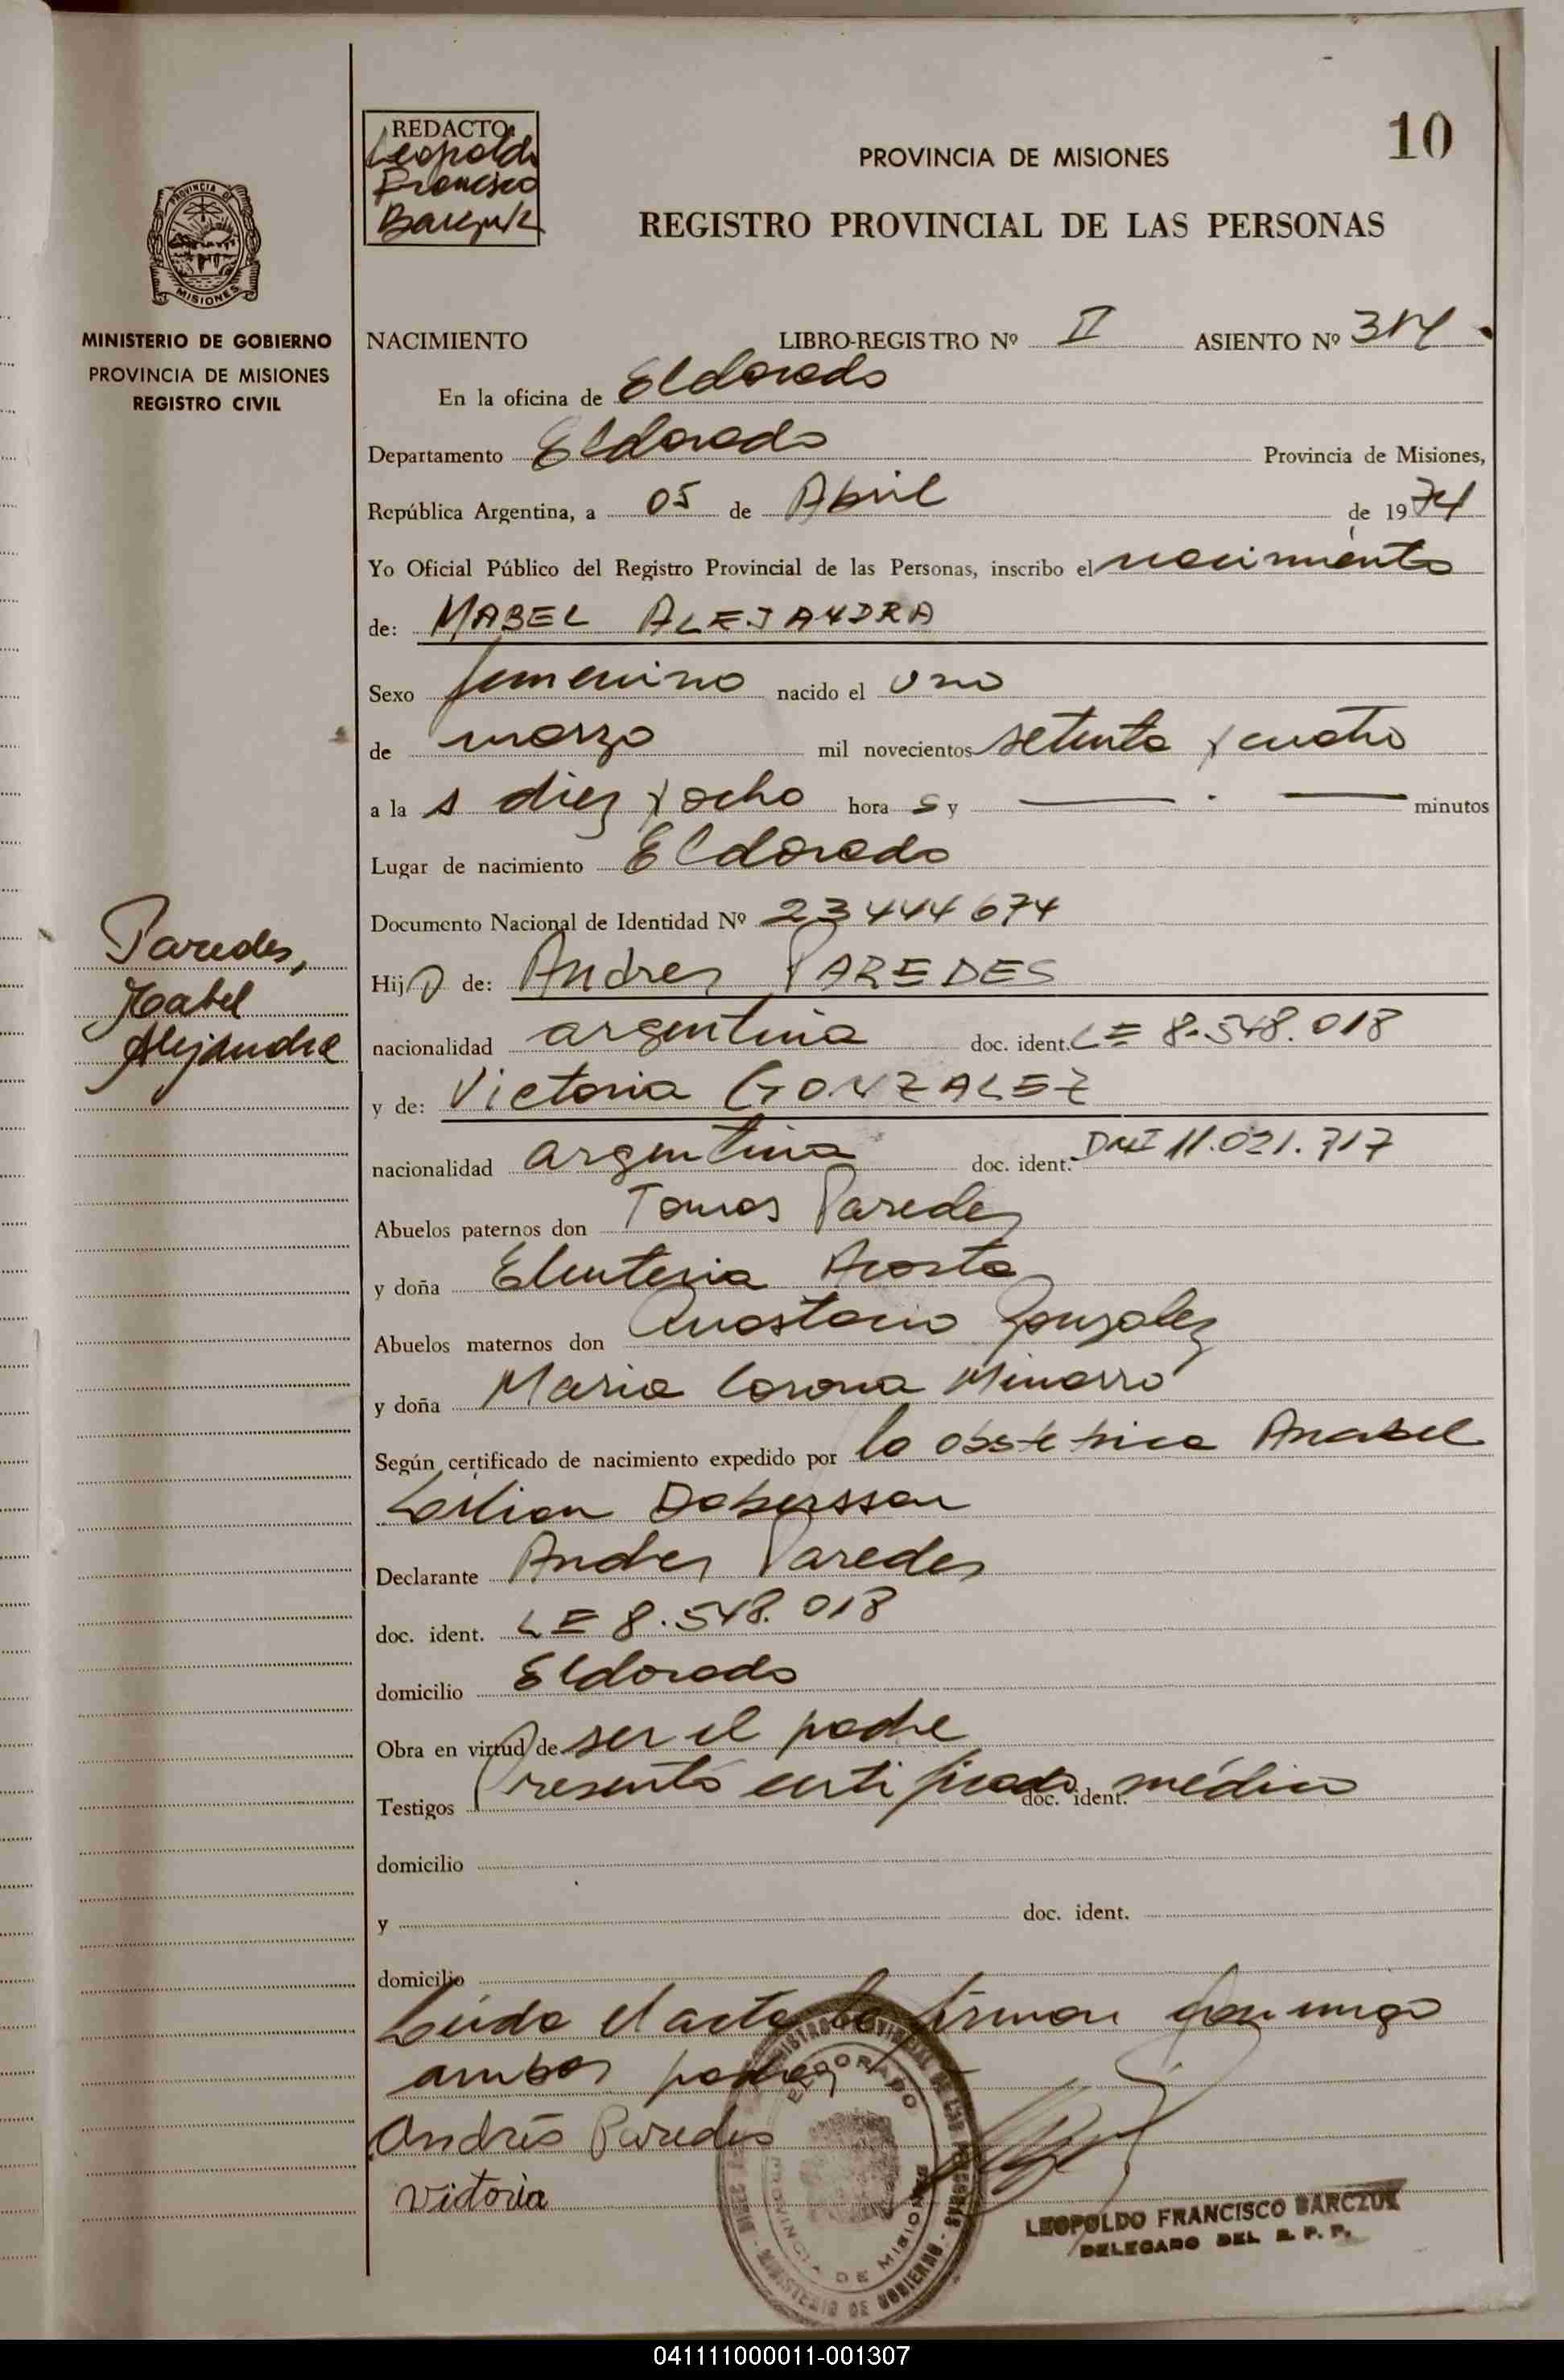 REDACTO
Leopoldo
Francisco
Barczuk
10
PROVINCIA DE MISIONES
REGISTRO PROVINCIAL DE LAS PERSONAS
PROVINCIA DE
MISIONES
MINISTERIO DE GOBIERNO
PROVINCIA DE MISIONES
REGISTRO CIVIL
NACIMIENTO LIBRO-REGISTRO Nº II ASIENTO Nº 314
En la oficina de Eldorado
Departamento Eldorado Provincia de Misiones,
República Argentina, a 05 de Abril de 1974
Yo Oficial Público del Registro Provincial de las Personas, inscribo el nacimiento
de: MABEL ALEJANDRA
Sexo femenino nacido el uno
de marzo mil novecientos setenta y cuatro
a la s diez y ocho hora s y minutos
Lugar de nacimiento Eldorado
Documento Nacional de Identidad Nº 23444674
Paredes,
Mabel
Alejandra
Hija de: Andres PAREDES
nacionalidad argentina doc. ident. LE 8.548.018
y de: Victoria GONZALEZ
nacionalidad argentina doc. ident. DNI 11.021.717
Abuelos paternos don Tomas Paredes
y doña Eleuteria Acosta
Abuelos maternos don Anastacio Gonzalez
y doña Maria Corona Minarro
Según certificado de nacimiento expedido por la obstetrica Anabel
Lilian
Declarante Andres Paredes
doc. ident. LE 8.548.018
domicilio Eldorado
Obra en virtud de ser el padre
Testigos Presentó certificado doc. ident. médico
domicilio
y doc. ident.
domicilio
Leida el acta la firman conmigo
ambos padres
Andrés Paredes
Victoria
REGISTRO PROVINCIAL DE LAS PERSONAS - MINISTERIO DE GOBIERNO
ELDORADO
PROVINCIA DE MISIONES
LEOPOLDO FRANCISCO BARCZUK
DELEGADO DEL R. P. P.
041111000011-001307